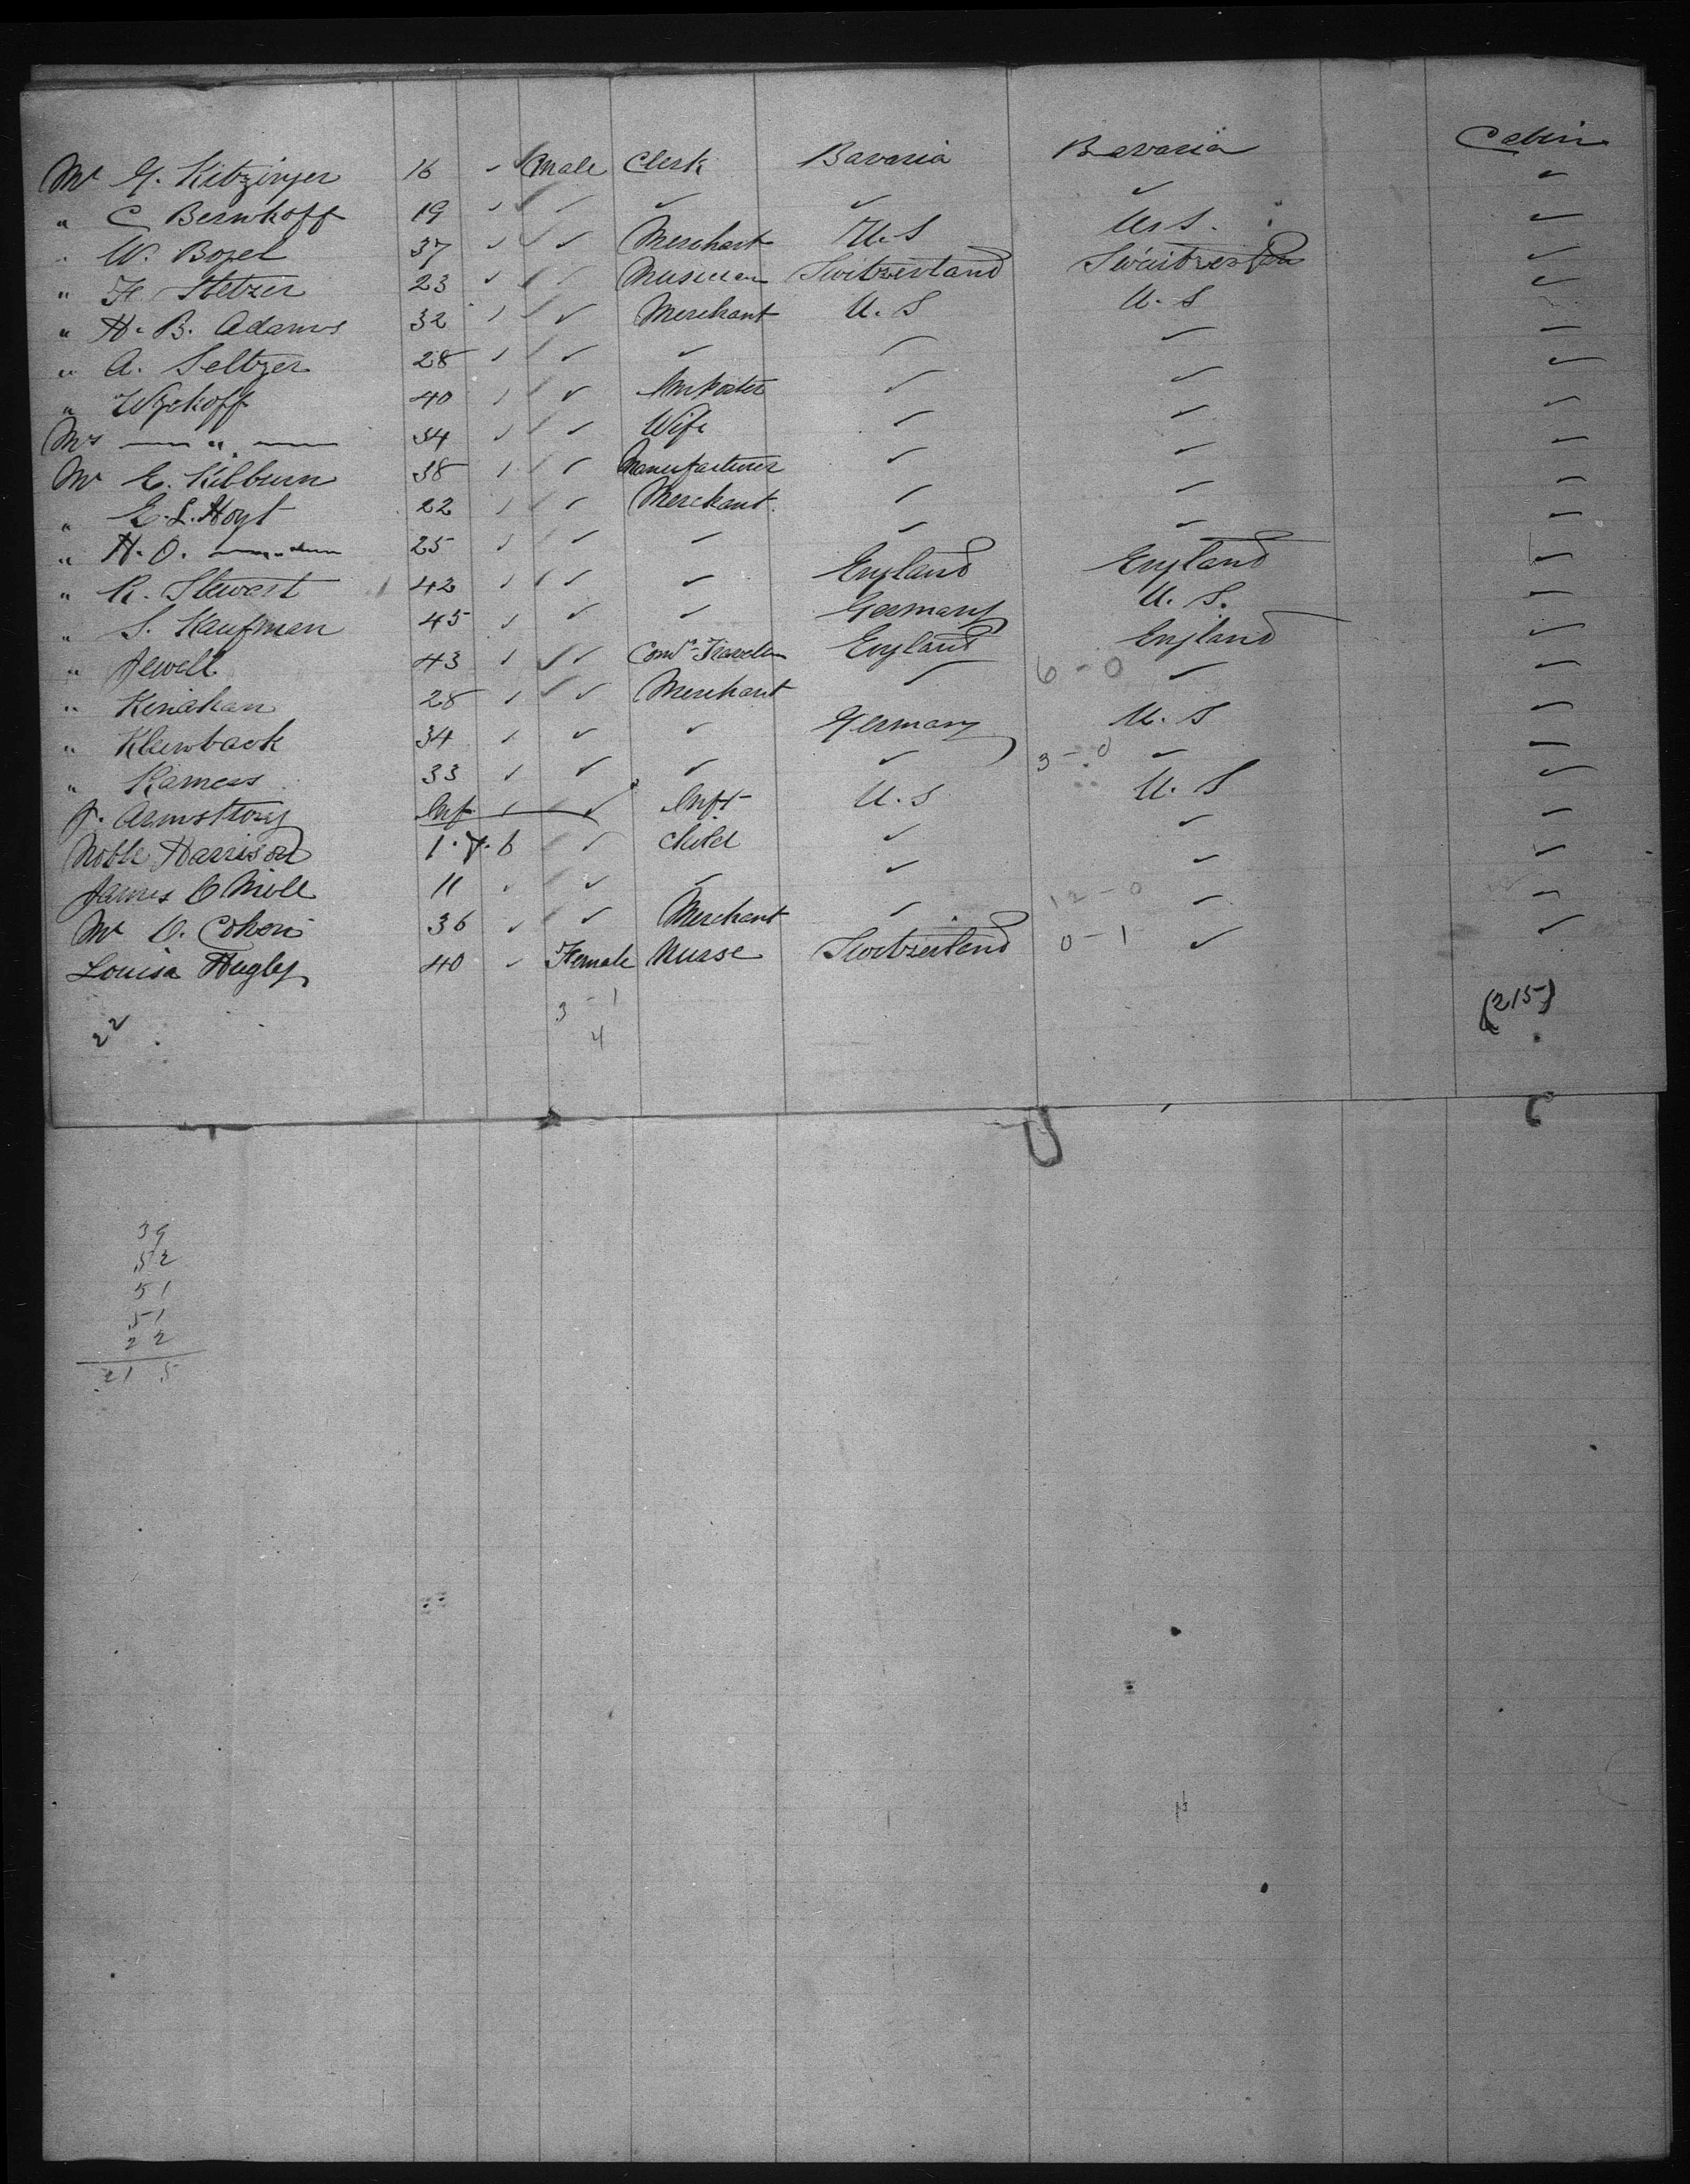 Mr G. Kitzinger 16 ✓ Male Clerk Bavaria Bavaria Cabin
" C Bernhoff 19 ✓ ✓ ✓ ✓ ✓ ✓
" W. Bozel 37 ✓ ✓ Merchant U.S U.S. ✓
" F. Stetzer 23 ✓ ✓ Musician Switzerland Switzerland ✓
" H. B. Adams 32 ✓ ✓ Merchant U.S U.S ✓
" A. Seltzer 28 ✓ ✓ ✓ ✓ ✓ ✓
" Wyckoff 40 ✓ ✓ Importer ✓ ✓ ✓
Mrs — " — 34 ✓ ✓ Wife ✓ ✓ ✓
Mr E. Kilburn 38 ✓ ✓ Manufacturer ✓ ✓ ✓
" E. L. Hoyt 22 ✓ ✓ Merchant ✓ ✓ ✓
" H. O. — " — 25 ✓ ✓ ✓ ✓ ✓ ✓
" R. Stewart 42 ✓ ✓ ✓ England England ✓
" S. Kaufman 45 ✓ ✓ ✓ Germany U.S. ✓
" Jewell 43 ✓ ✓ Coml Traveller England England ✓
" Kinahan 28 ✓ ✓ Merchant ✓ 6-0 ✓ ✓
" Kleinback 34 ✓ ✓ ✓ Germany U.S ✓
" Ramess 33 ✓ ✓ ✓ ✓ 3-0 ✓ ✓
J. Armstrong Inf ✓ ✓ Inft U.S U.S ✓
Noble Harrison 1.7.6 ✓ Child ✓ ✓ ✓
James O'Neill 11 ✓ ✓ ✓ ✓ ✓ ✓
Mr O. Cohen 36 ✓ ✓ Merchant ✓ 12-0 ✓ ✓
Louisa Hugly 40 ✓ Female Nurse Switzerland 0-1 ✓ ✓
3-1
22 4 (215)
39
52
51
51
22
215